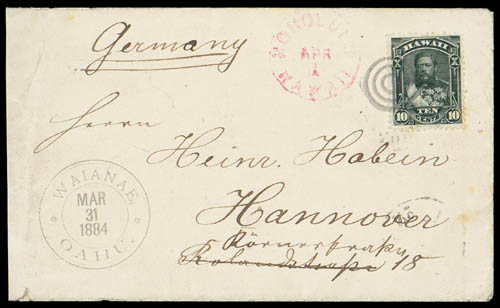 Germany
HONOLULU
APR
1
HAWAII
HAWAII
10 TEN 10
CENTS
Herrn
Heinr. Habein
Hannover
Körnerstraße
Rolandstraße 18
WAIANAE,
MAR
31
1884
OAHU.